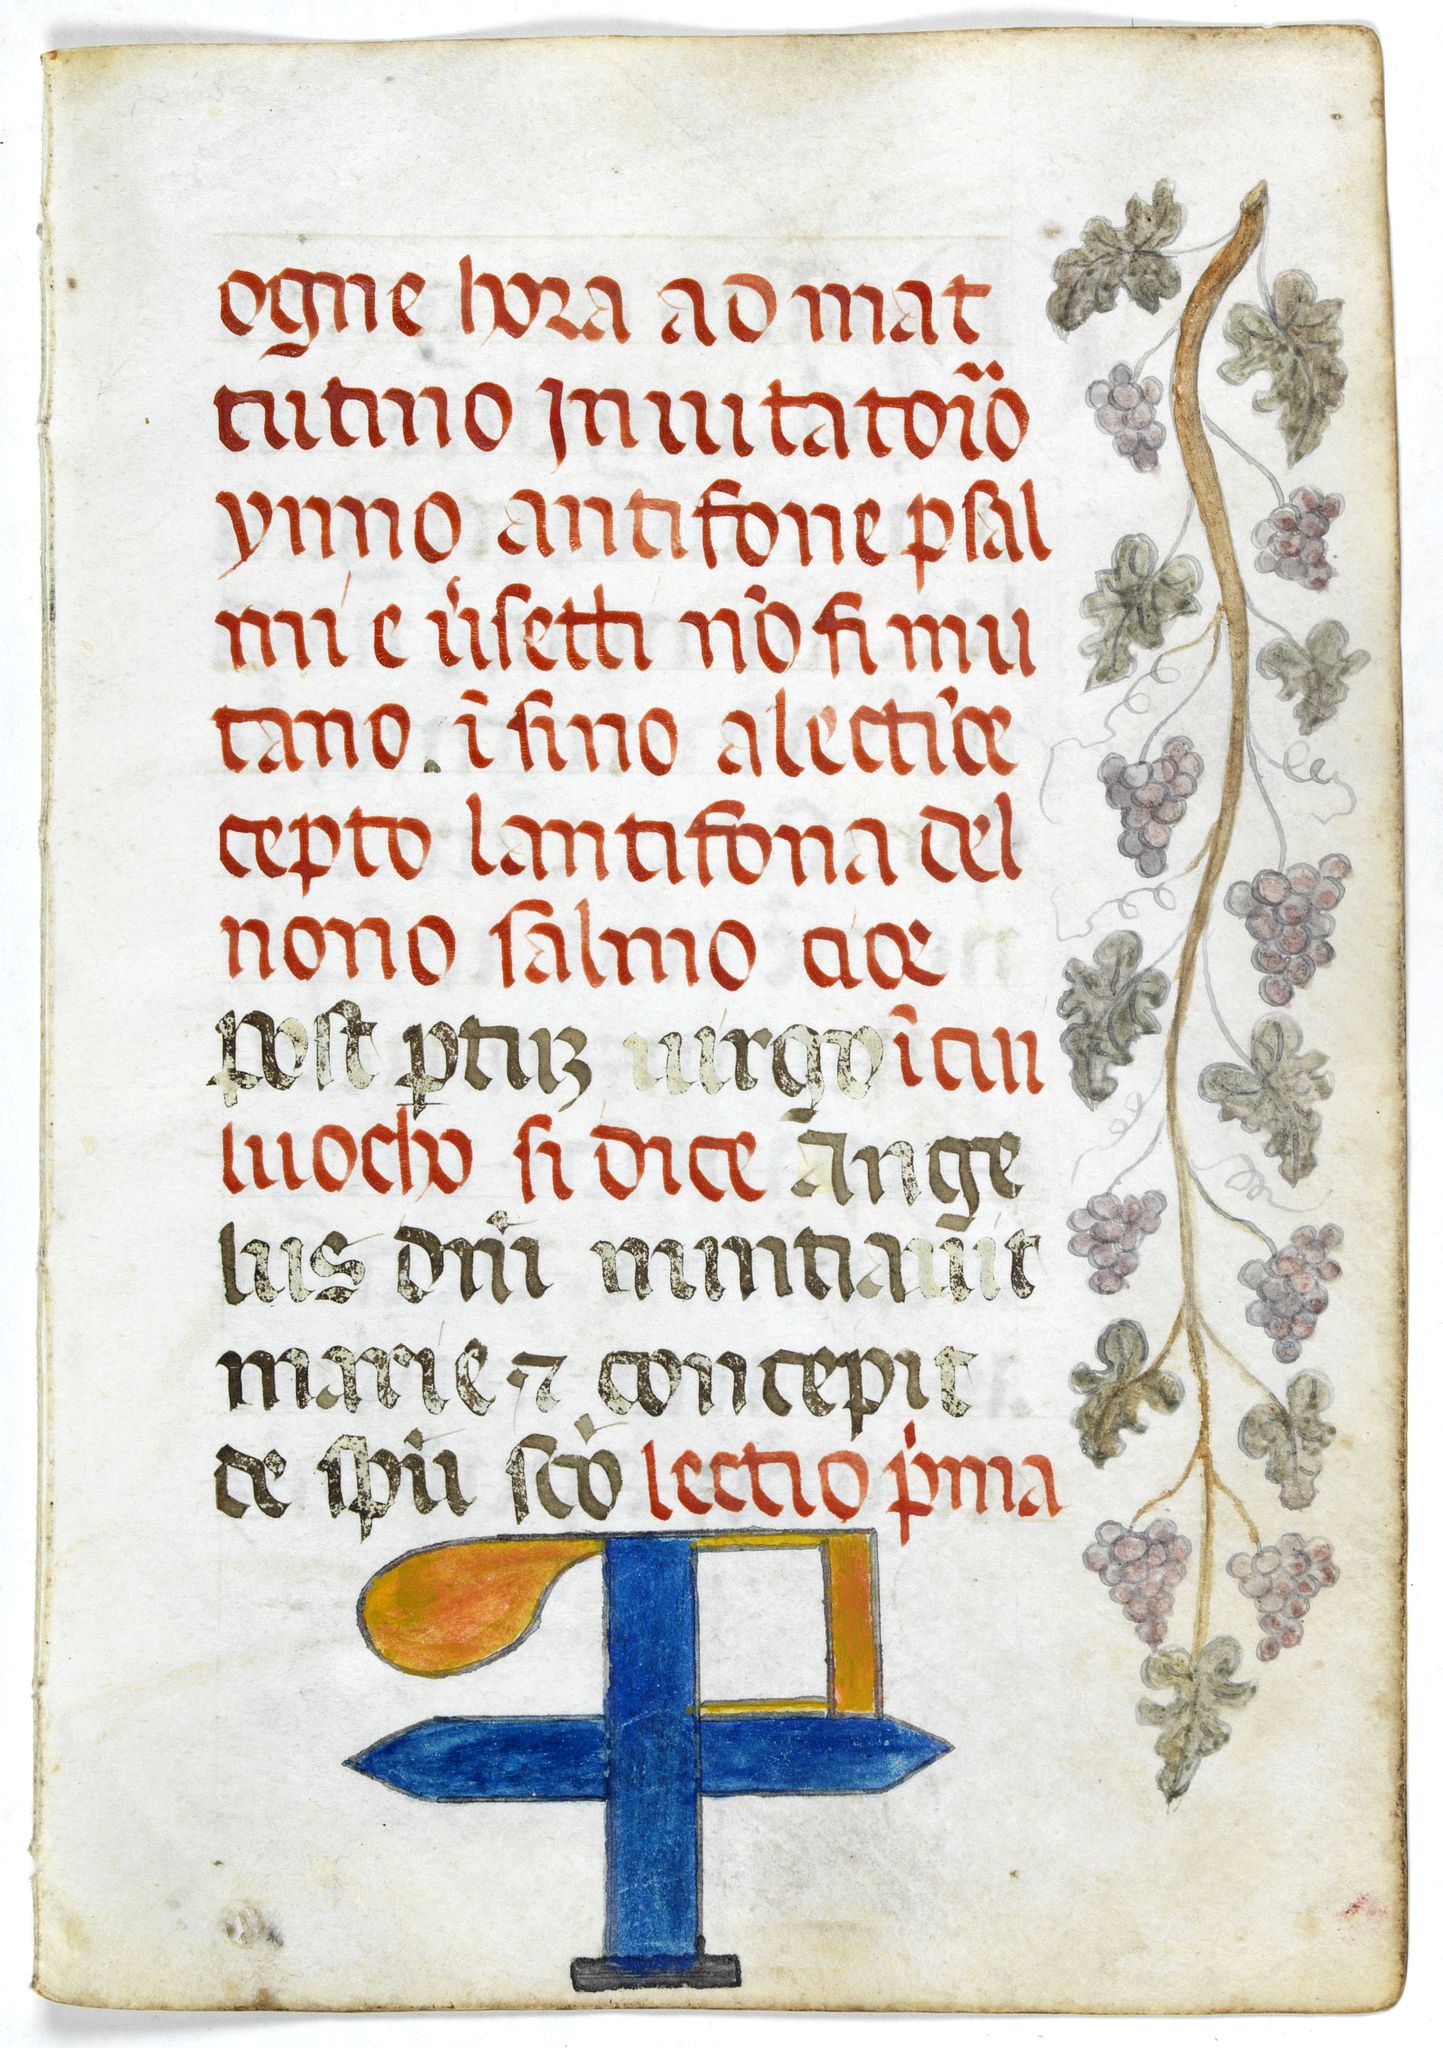 ogne hora ad mat
tutino Inuitatorio
ynno antifone psal
mi e ũsetti nõ si mu
tano. ĩ sino a lectiõe
cepto lantifona del
nono salmo cioe
post ptuꝫ uirgo ĩ cui
luocho si dice Ange
lus dñi nuntiauit
marie ⁊ concepit
de spũ scõ lectio pͥma